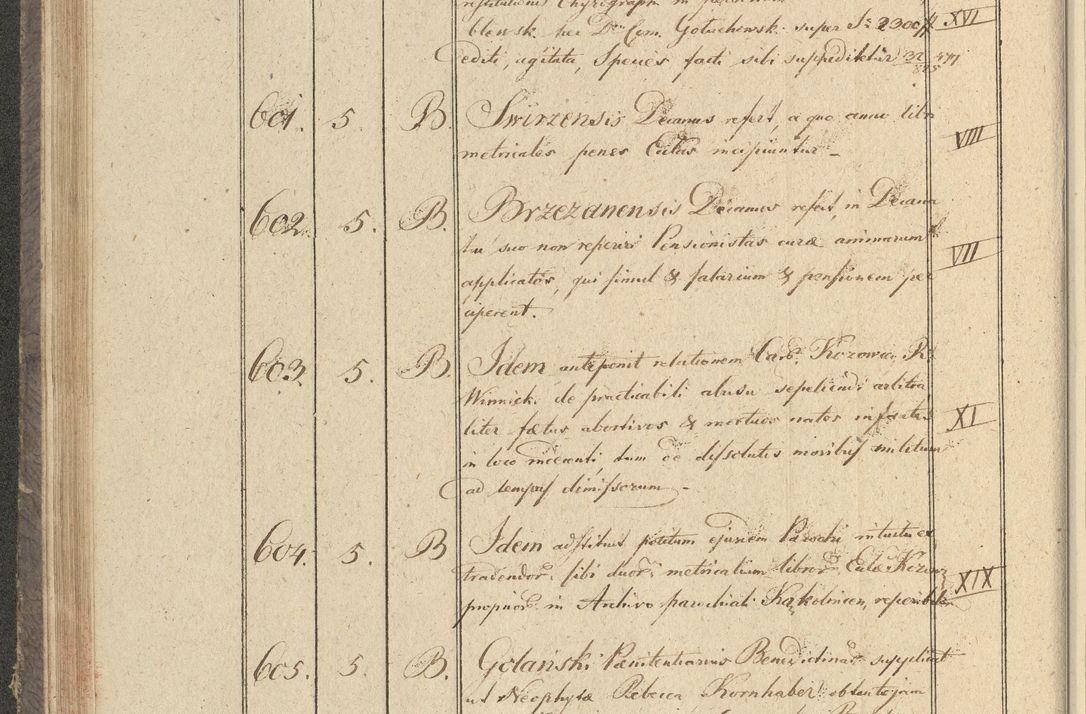 blewsk. per Dnum Com. Goluchowsk. super Sr 2300 ff XVI
editi, agitata, Species facti sibi suppeditetur 32/845 471
601. 5. B. Swirzensis Decanus refert, a quo anno libri
metricales penes Eccłas incipiuntur - VIII
602. 5. B. Brzezanensis Decanus refert, in Decana
tu suo non reperiri Pensionistas curae animarum
applicatos, qui simul & salarium & pensionem per VII
ciperent.
603. 5. B. Idem anteponit relationem Kozowa R.
Winnick. de practicabili abusu sepeliendi arbitra
liter fœtus abortivos & mortuos natos infantes XI
in loco indecenti, tum de dissolutis moribus militum
ad tempus dimissorum -
604. 5. B Idem adstituit petitum ejusdem Parochi intuitu ex
tradendor. sibi duor. metricalium libror. Eccłae Kozow XIX
proprior. in Archivo parochiali Kąkolnicen. reperibilium
605. 5. B. Golański Pœnitentiarius Benedictinar. supplicat
ut Neophytæ Rebecca Kornhaber obtentojam